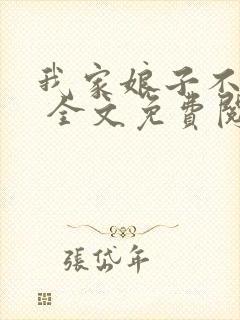 我家娘子不
全文免費閱
張岱年